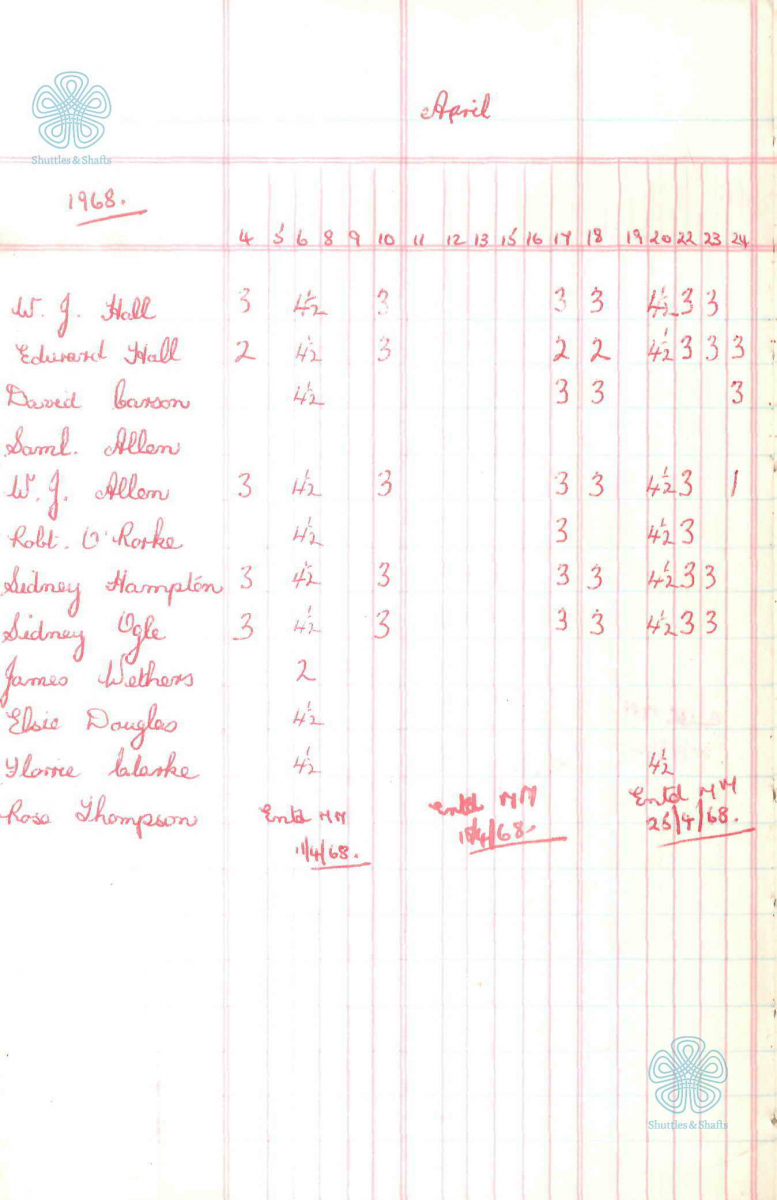 Shuttles & Shafts
April
1968.
4 5 6 8 9 10 11 12 13 15 16 17 18 19 20 22 23 24
W. J. Hall 3 4½ 3 3 3 4½ 3 3
Edward Hall 2 4½ 3 2 2 4½ 3 3 3
David Carson 4½ 3 3 3
Saml. Allen
W. J. Allen 3 4½ 3 3 3 4½ 3 1
Robt. O'Rorke 4½ 3 4½ 3
Sidney Hampton 3 4½ 3 3 3 4½ 3 3
Sidney Ogle 3 4½ 3 3 3 4½ 3 3
James Wethers 2
Elsie Douglas 4½
Florrie Clarke 4½ 4½
Rose Thompson Entd MM Entd MM Entd MM
11/4/68. 18/4/68. 25/4/68.
Shuttles & Shafts